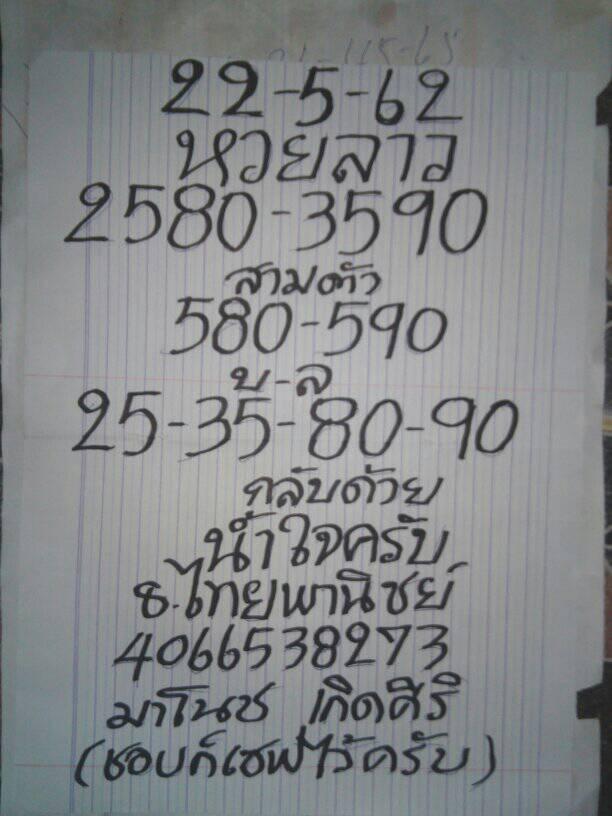 22-5-62
หวยลาว
2580-3590
สามตัว
580-590
บ-ล
25-35-80-90
กลับด้วย
น้ำใจครับ
ธ.ไทยพานิชย์
4066538273
มาโนช เกิดศิริ
(ชอบก็เซฟไว้ครับ)